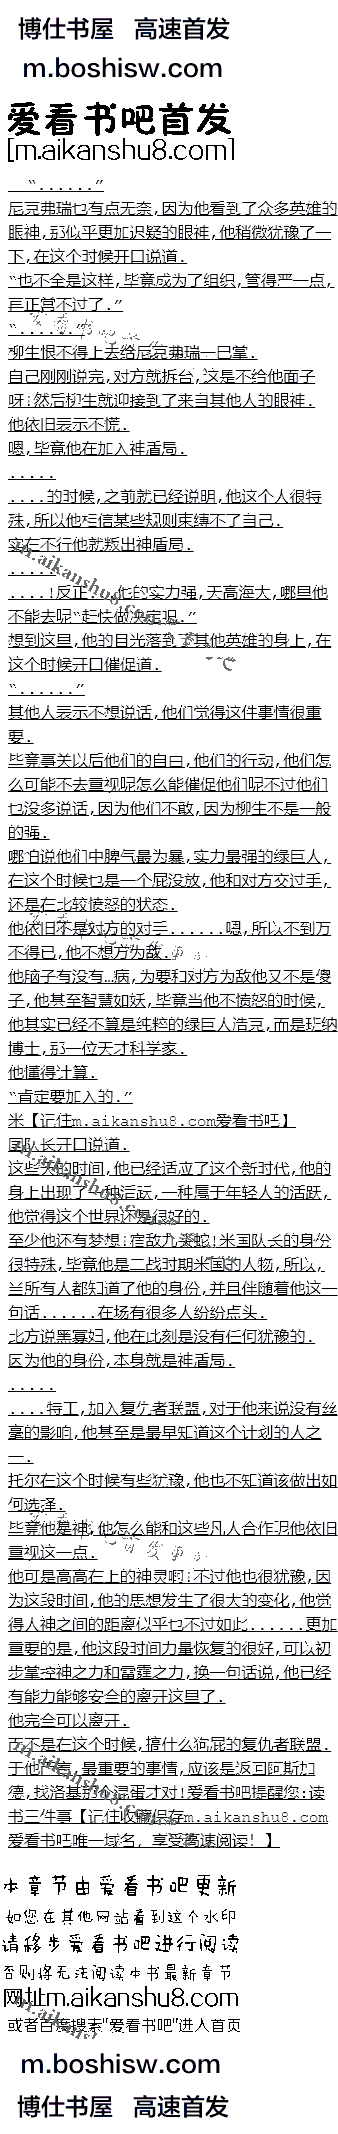 博仕书屋 高速首发
m.boshisw.com
爱看书吧首发
[m.aikanshu8.com]
“......”
尼克弗瑞也有点无奈,因为他看到了众多英雄的
眼神,那似乎更加迟疑的眼神,他稍微犹豫了一
下,在这个时候开口说道.
“也不全是这样,毕竟成为了组织,管得严一点,
再正常不过了.”
“......”
柳生恨不得上去给尼克弗瑞一巴掌.
自己刚刚说完,对方就拆台,这是不给他面子
呀!然后柳生就迎接到了来自其他人的眼神.
他依旧表示不慌.
嗯,毕竟他在加入神盾局.
.....
....的时候,之前就已经说明,他这个人很特
殊,所以他相信某些规则束缚不了自己.
实在不行他就叛出神盾局.
.....
....!反正...他的实力强,天高海大,哪里他
不能去呢“赶快做决定吧.”
想到这里,他的目光落到了其他英雄的身上,在
这个时候开口催促道.
“......”
其他人表示不想说话,他们觉得这件事情很重
要.
毕竟事关以后他们的自由,他们的行动,他们怎
么可能不去重视呢怎么能催促他们呢不过他们
也没多说话,因为他们不敢,因为柳生不是一般
的强.
哪怕说他们中脾气最为暴,实力最强的绿巨人,
在这个时候也是一个屁没放,他和对方交过手,
还是在比较愤怒的状态.
他依旧不是对方的对手......嗯,所以不到万
不得已,他不想方为敌.
他脑子有没有…病,为要和对方为敌他又不是傻
子,他甚至智慧如妖,毕竟当他不愤怒的时候,
他其实已经不算是纯粹的绿巨人浩克,而是班纳
博士,那一位天才科学家.
他懂得计算.
“肯定要加入的.”
米【记住m.aikanshu8.com爱看书吧】
国队长开口说道.
这些天的时间,他已经适应了这个新时代,他的
身上出现了一种活跃,一种属于年轻人的活跃,
他觉得这个世界还是很好的.
至少他还有梦想!宿敌九头蛇!米国队长的身份
很特殊,毕竟他是二战时期米国的人物,所以,
当所有人都知道了他的身份,并且伴随着他这一
句话......在场有很多人纷纷点头.
比方说黑寡妇,他在此刻是没有任何犹豫的.
因为他的身份,本身就是神盾局.
.....
....特工,加入复仇者联盟,对于他来说没有丝
毫的影响,他甚至是最早知道这个计划的人之
一.
托尔在这个时候有些犹豫,他也不知道该做出如
何选择.
毕竟他是神,他怎么能和这些凡人合作呢他依旧
重视这一点.
他可是高高在上的神灵啊!不过他也很犹豫,因
为这段时间,他的思想发生了很大的变化,他觉
得人神之间的距离似乎也不过如此......更加
重要的是,他这段时间力量恢复的很好,可以初
步掌控神之力和雷霆之力,换一句话说,他已经
有能力能够安全的离开这里了.
他完全可以离开.
而不是在这个时候,搞什么狗屁的复仇者联盟.
于他而言,最重要的事情,应该是返回阿斯加
德,找洛基那个混蛋才对!爱看书吧提醒您:读
书三件事【记住收藏保存m.aikanshu8.com
爱看书吧唯一域名,享受高速阅读!】
本章节由爱看书吧更新
如您在其他网站看到这个水印
请移步爱看书吧进行阅读
否则将无法阅读本书最新章节
网址m.aikanshu8.com
或者百度搜索"爱看书吧"进入首页
m.boshisw.com
博仕书屋 高速首发